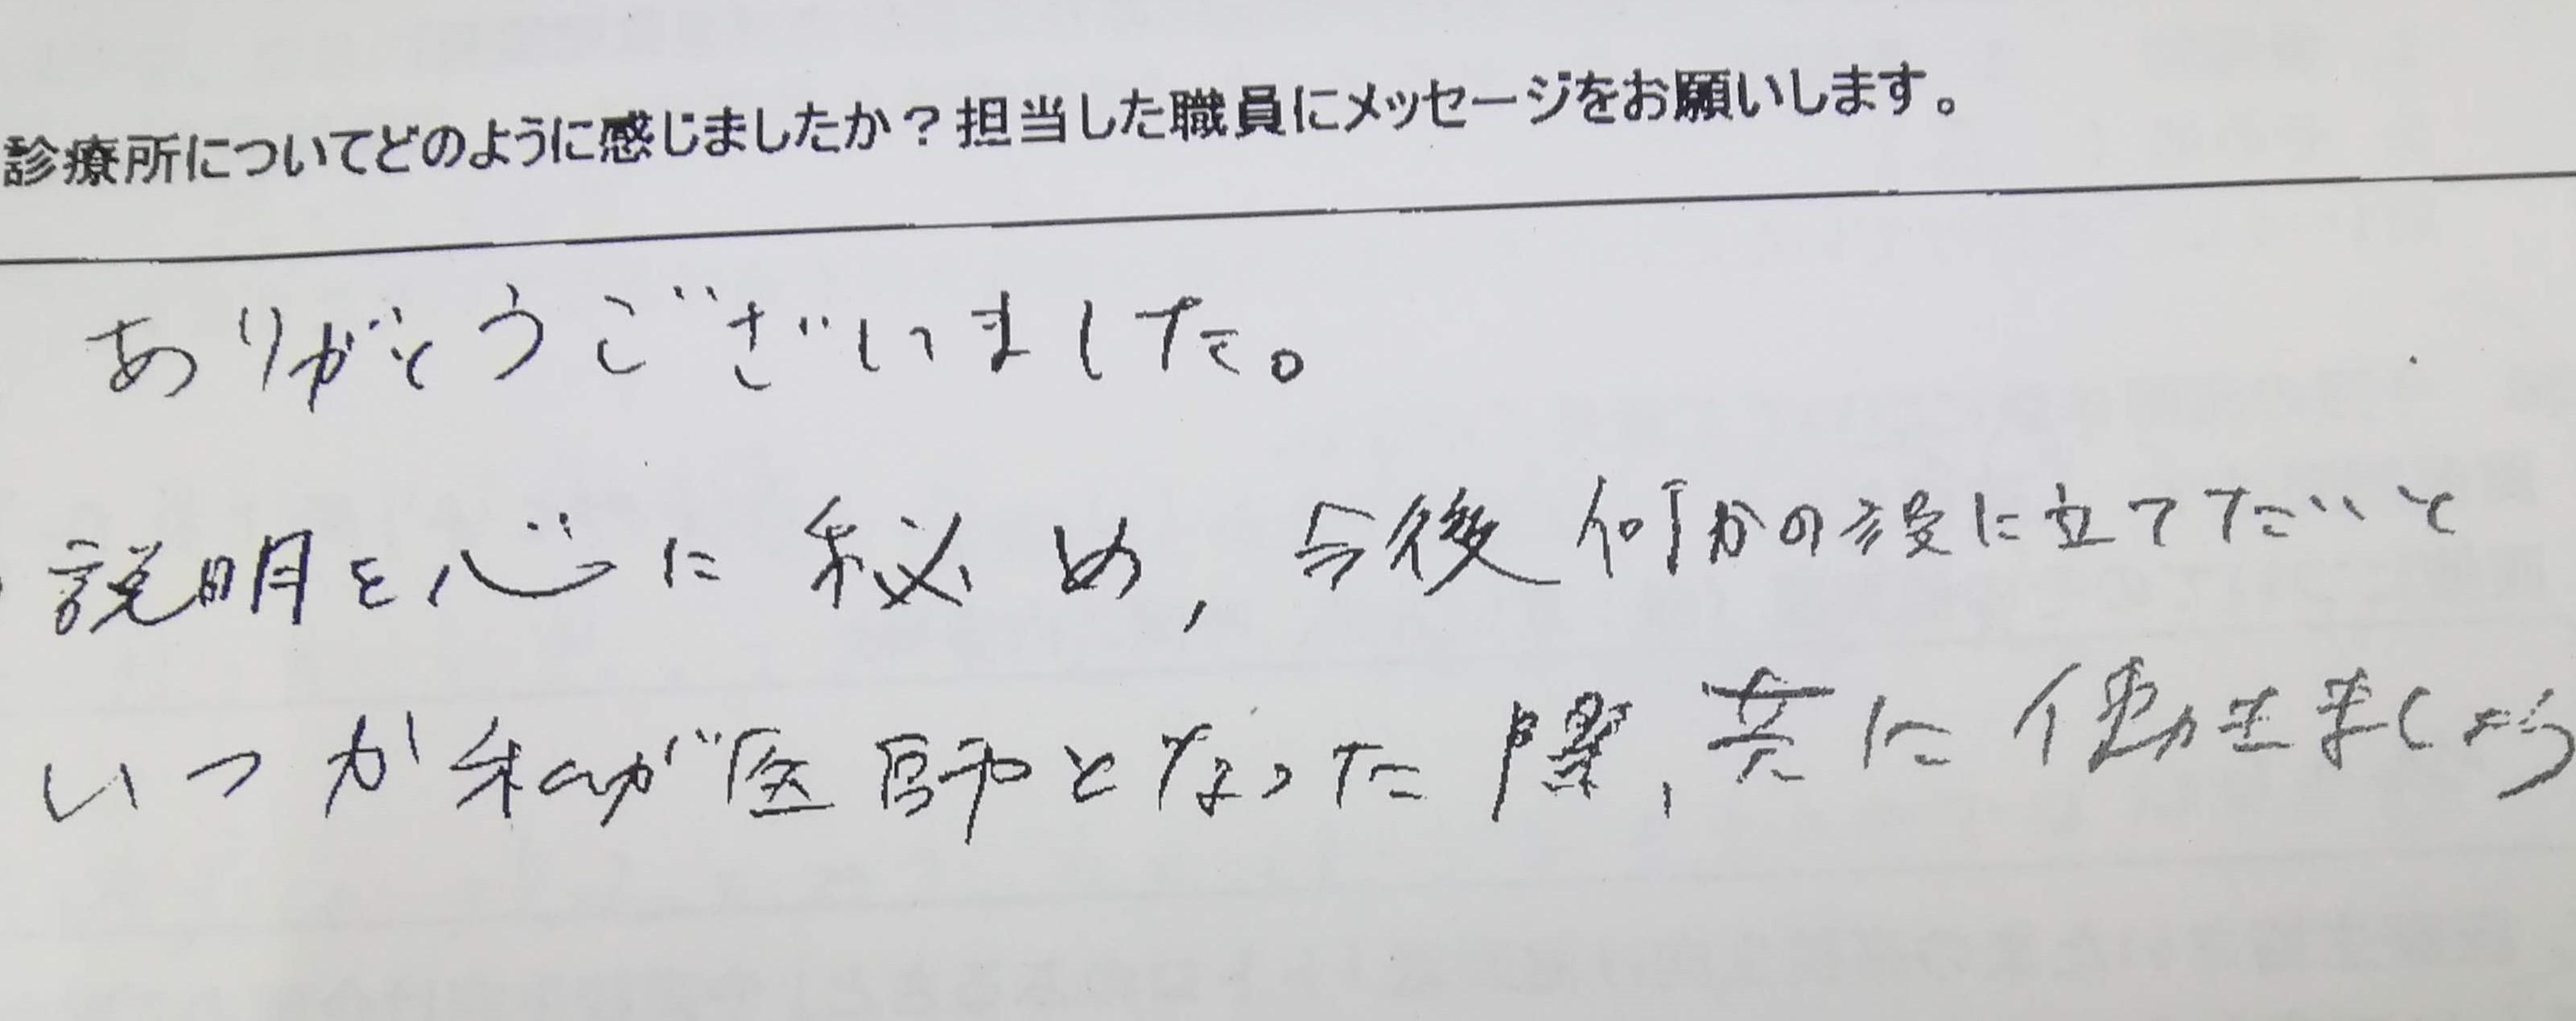 診療所についてどのように感じましたか？担当した職員にメッセージをお願いします。
ありがとうございました。
説明を心に秘め，今後何かの役に立てたいと
いつか私が医師となった際，共に働きましょう